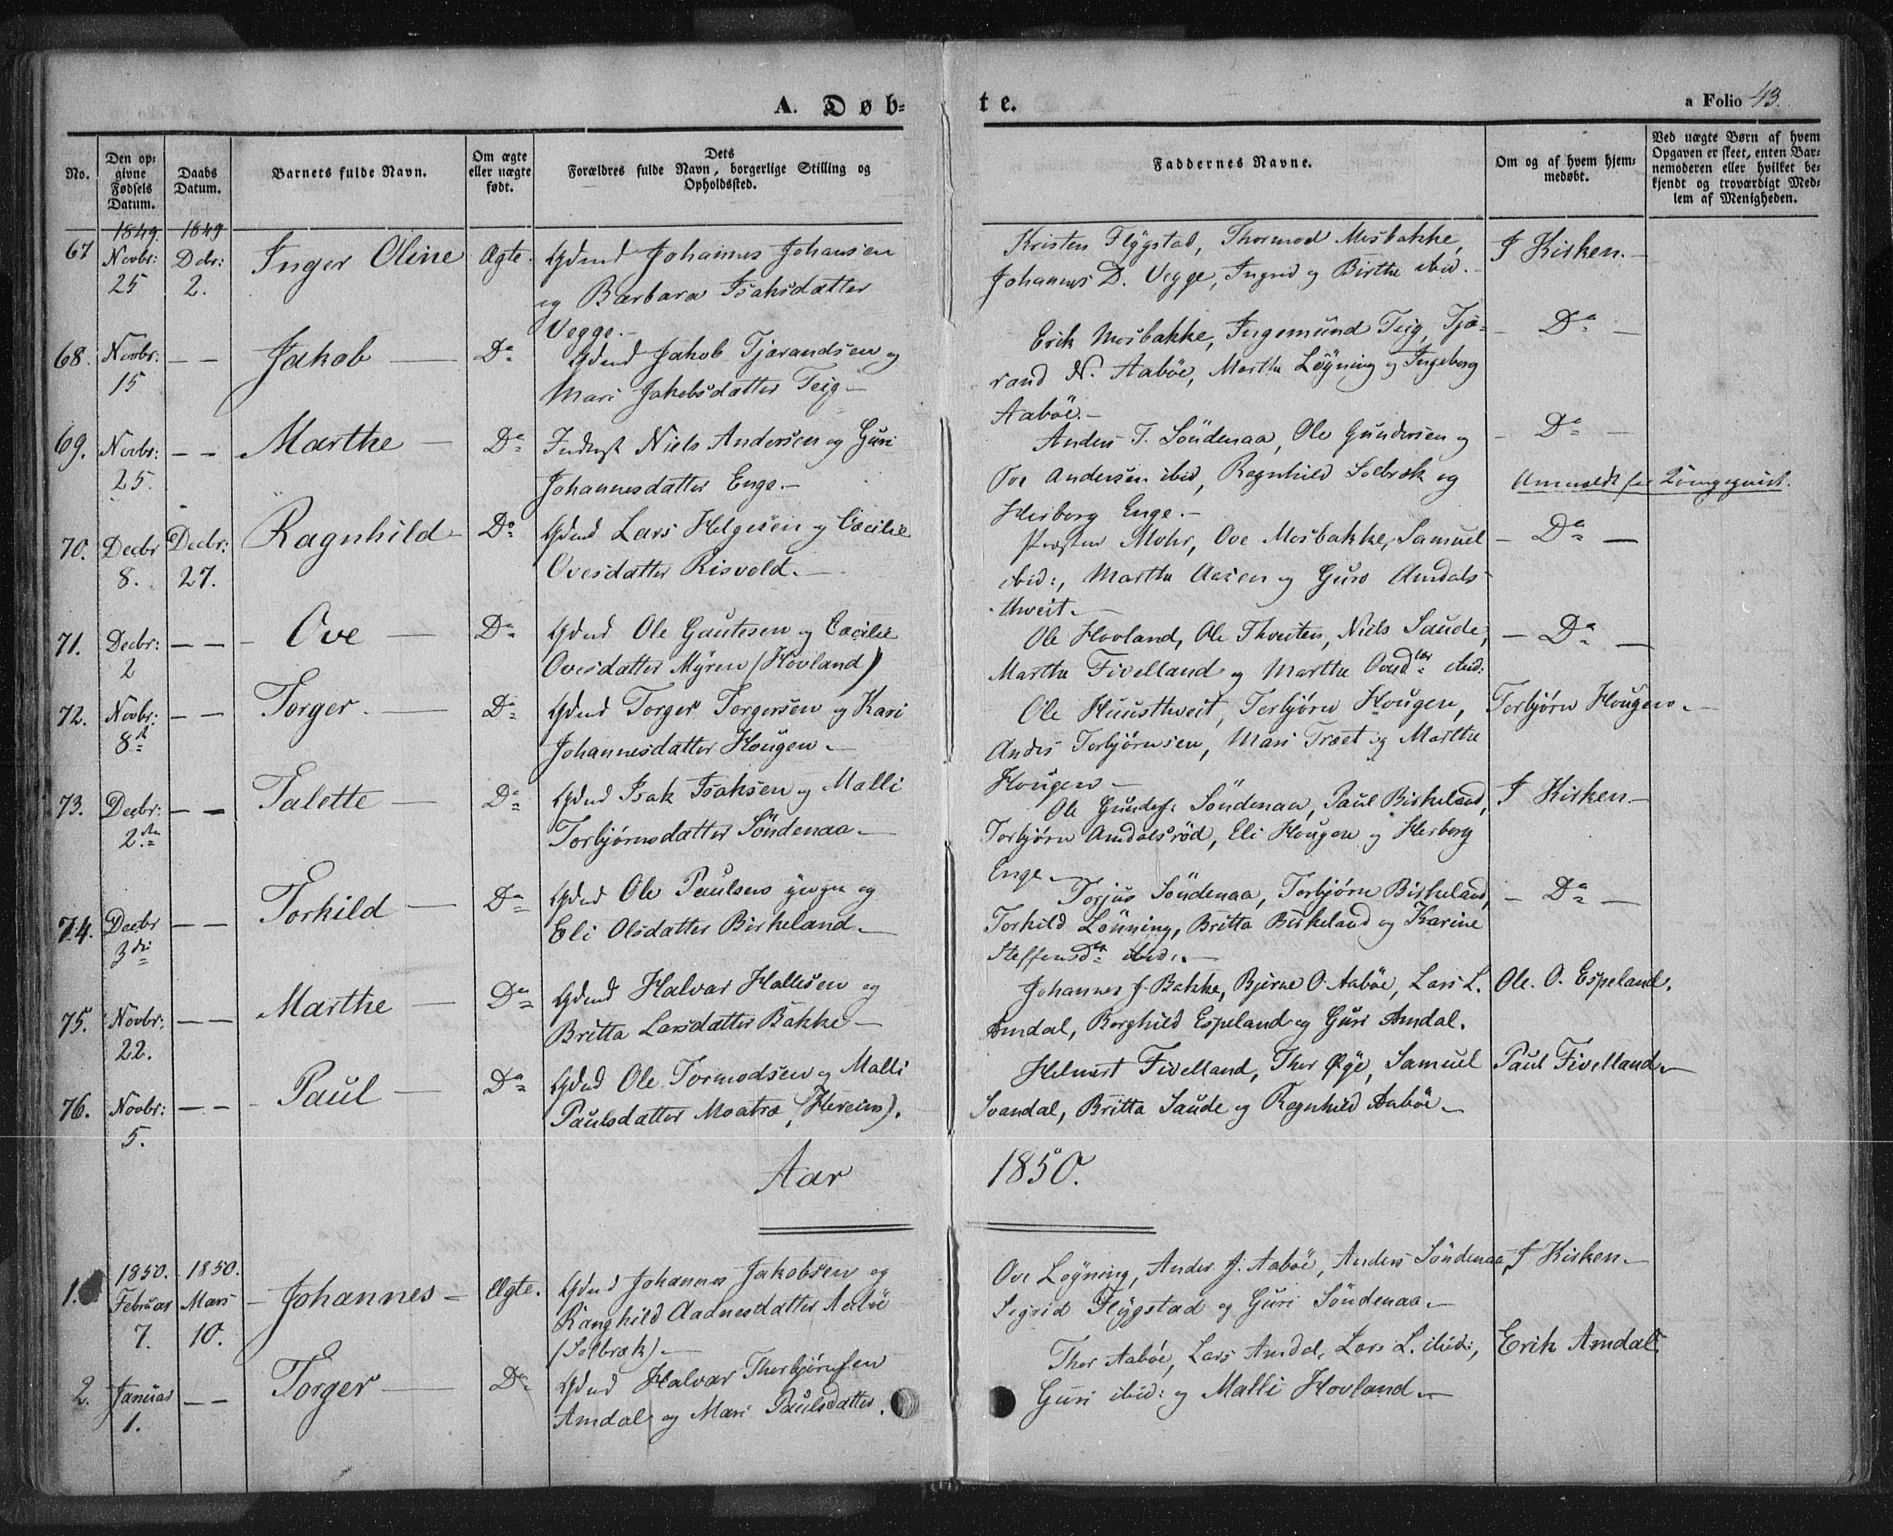 A. Døb-
te.
a Folio 43.
No.
Den op-
givne
Fødsels
Datum.
Daabs
Datum.
Barnets fulde Navn.
Om ægte
eller uægte
født.
Dets
Forældres fulde Navn, borgerlige Stilling og
Opholdssted.
Faddernes Navne.
Om og af hvem hjem-
medøbt.
Ved uægte Børn af hvem
Opgaven er skeet, enten Bar-
nemoderen eller hvilket be-
kjendt og troværdigt Med-
lem af Menigheden.
67
1849.
Novbr:
25
1849
Debr:
2.
Inger Oline
Ægte.
Gdmd Johannes Johansen
og Barbara Isaksdatter
Vegge.-
Kristen Flygstad, Thormod Mosbakke,
Johannes D. Vegge, Ingrid og Birthe ibid.-
I Kirken.-
68.
Novbr:
15
— —
Jakob —
Do
Gdmd Jakob Tjerandsen og
Mari Jakobsdatter Teig -
Erik Mosbakke, Ingemund Teig, Tjø-
rand N. Aabøe, Marthe Løyning og Ingeborg
Aabøe.-
— Do —
69.
Novbr:
25.
— —
Marthe —
Do
Inderst Niels Andersen og Guri
Johannesdatter Enge.-
Anders T. Söndenaa, Ole Gundersen og
Ove Andersen ibid, Ragnhild Solbræk og
Herborg Enge.-
— Do —
70.
Decbr
8.
Decbr:
27.
Ragnhild
Do
Gdmd Lars Helgesen og Cæcilie
Ovesdatter Risvold.-
Præsten Mohr, Ove Mosbakke, Samuel
ibid:, Marthe Aasen og Guro Amdals-
thveit.-
— Do —
71.
Decbr:
2
— —
Ove —
Do
Gdmd Ole Gautesen og Cæcilie
Ovesdatter Myren (Hovland)
Ole Hovland, Ole Thveiten, Niels Saude,
Marthe Fivelland og Marthe Ovesdtr ibid:
— Do —
72.
Novbr:
8de
— —
Torger. —
Do
Gdmd Torger Torgersen og Kari
Johannesdatter Hougen.-
Ole Huusthveit, Torbjørn Hougen,
Anders Torbjørnsen, Mari Træet og Marthe
Hougen -
Torbjørn Hougen.-
73.
Decbr:
2den
— —
Talette —
Do
Gdmd Isak Isaksen og Malli
Torbjørnsdatter Söndenaa.-
Ole Gunders: Söndenaa, Paul Birkeland,
Torbjørn Amdalsrød, Eli Hougen og Herborg
Enge.-
I Kirken -
74.
Decbr
3die
— —
Torkild —
Do
Gdmd Ole Paulsen yngre og
Eli Olsdatter Birkeland.-
Torjus Söndenaa, Torbjørn Birkeland,
Torkild Lönning, Britta Birkeland og Karine
Steffensdtr ibid:.-
— Do —
75.
Novbr:
22.
— —
Marthe —
Do
Gdmd Halvar Hallesen og
Britta Larsdatter Bakke -
Johannes J. Bakke, Bjerne O. Aabøe, Lars L.
Amdal, Borghild Espeland og Guri Amdal.
Ole. O. Espeland.
76.
Novbr:
5.
— —
Paul —
Do
Gdmd Ole Tormodsen og Malli
Paulsdatter Moatræ, (Hereim).
Helmert Fivelland, Thor Øye, Samuel
Svandal, Britta Saude og Ragnhild Aabøe -
Paul Fivelland.-
Aar 1850.
1.
1850.
Februar
7.
1850.
Mars
10.
Johannes -
Ægte.
Gdmd Johannes Jakobsen og
Ranghild Aadnesdatter Aabøe
(Solbræk).-
Ove Løyning, Anders J. Aabøe, Anders Söndenaa,
Sigrid Flygstad og Guri Söndenaa.-
I Kirken.-
2.
Januar
1.
— —
Torger —
Do
Gdmd Halvar Thorbjørnsen
Amdal og Mari Paulsdatter.
Thor Aabøe, Lars Amdal, Lars L. ibid:,
Guri ibid: og Malli Hovland.-
Erik Amdal.